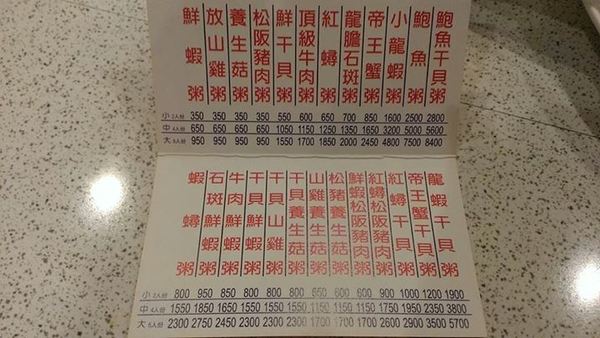 鮑魚干貝粥
鮑魚粥
小龍蝦粥
帝王蟹粥
龍膽石斑粥
紅蟳粥
頂級牛肉粥
鮮干貝粥
松阪豬肉粥
養生菇粥
放山雞粥
鮮蝦粥
小2人份 350 350 350 350 550 600 650 700 850 1600 2500 2800
中4人份 650 650 650 650 1050 1150 1250 1350 1650 3200 5000 5600
大6人份 950 950 950 950 1550 1700 1850 2000 2450 4800 7500 8400
龍蝦干貝粥
帝王蟹干貝粥
紅蟳干貝粥
紅蟳松阪豬肉粥
鮮蝦松阪豬肉粥
松豬養生菇粥
山雞養生菇粥
干貝養生菇粥
干貝山雞粥
干貝鮮蝦粥
牛肉鮮蝦粥
石斑鮮蝦粥
蝦蟳粥
小2人份 800 950 850 800 800 800 600 600 900 1000 1200 1900
中4人份 1550 1850 1650 1550 1550 1550 1150 1150 1150 1750 1950 2350 3800
大6人份 2300 2750 2450 2300 2300 2300 1700 1700 1700 2600 2900 3500 5700